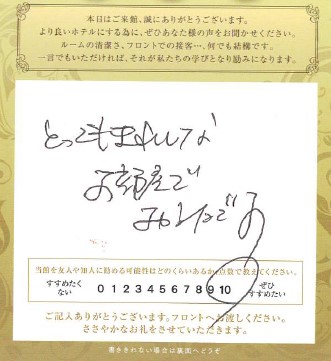 本日はご来館、誠にありがとうございます。
より良いホテルにする為に、ぜひあなた様の声をお聞かせください。
ルームの清潔さ、フロントでの接客…、何でも結構です。
一言でもいただければ、それが私たちの学びとなり励みになります。
とってもきれいな
お部屋で
当館を友人や知人に勧める可能性はどのくらいあるか、点数で教えてください。
すすめたくない 0 1 2 3 4 5 6 7 8 9 10 ぜひすすめたい
ご記入ありがとうございます。フロントへお渡しください。
ささやかなお礼をさせていただきます。
書ききれない場合は裏面へどうぞ